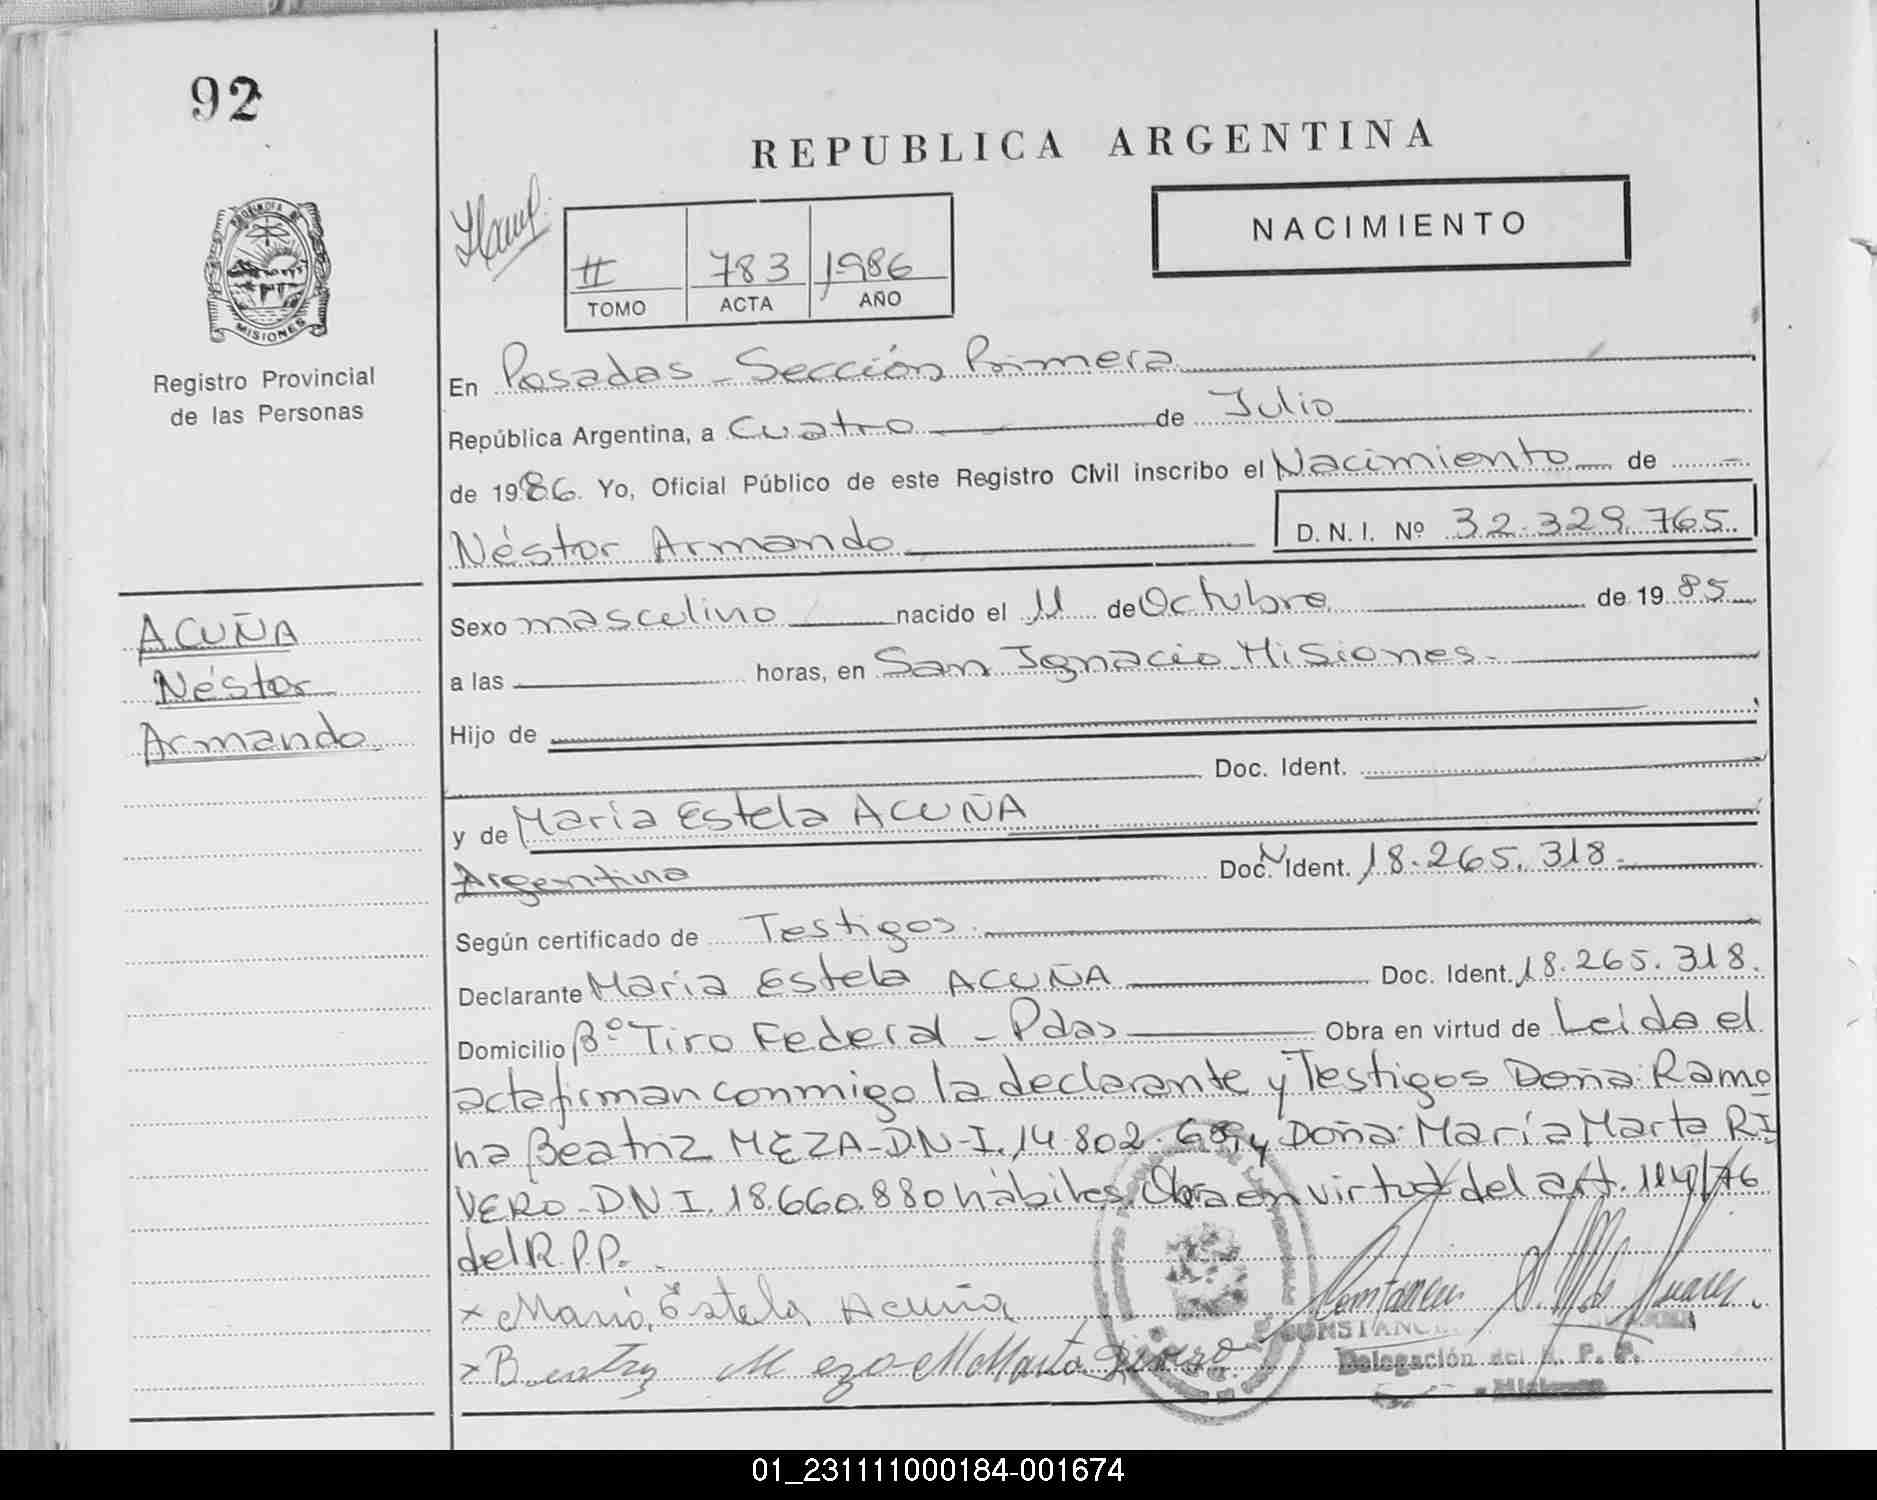 92
REPUBLICA ARGENTINA
NACIMIENTO
II 783 1986
TOMO ACTA AÑO
PROVINCIA DE
MISIONES
Registro Provincial
de las Personas
En Posadas - Sección Primera
República Argentina, a Cuatro de Julio
de 1986. Yo, Oficial Público de este Registro Civil inscribo el Nacimiento de
Néstor Armando D. N. I. Nº 32.329.765.
ACUÑA
Néstor
Armando
Sexo masculino nacido el 11 de Octubre de 1985
a las horas, en San Ignacio Misiones.
Hijo de
Doc. Ident.
y de María Estela ACUÑA
Argentina Doc. Ident. 18.265.318.
Según certificado de Testigos
Declarante María Estela ACUÑA Doc. Ident. 18.265.318.
Domicilio Bº Tiro Federal - Pdas Obra en virtud de Leida el
acta firman conmigo la declarante y Testigos Doña: Ramo
na Beatriz MEZA-D.N.I. 14.802. y Doña: María Marta RI
VERO-D.N.I. 18.660.880 hábiles. Obra en virtud del art. 114/76
del R.P.P.
x María Estela Acuña
x Beatriz Meza - M Marta Rivero
Delegación del R. P. P.
Misiones
01_231111000184-001674